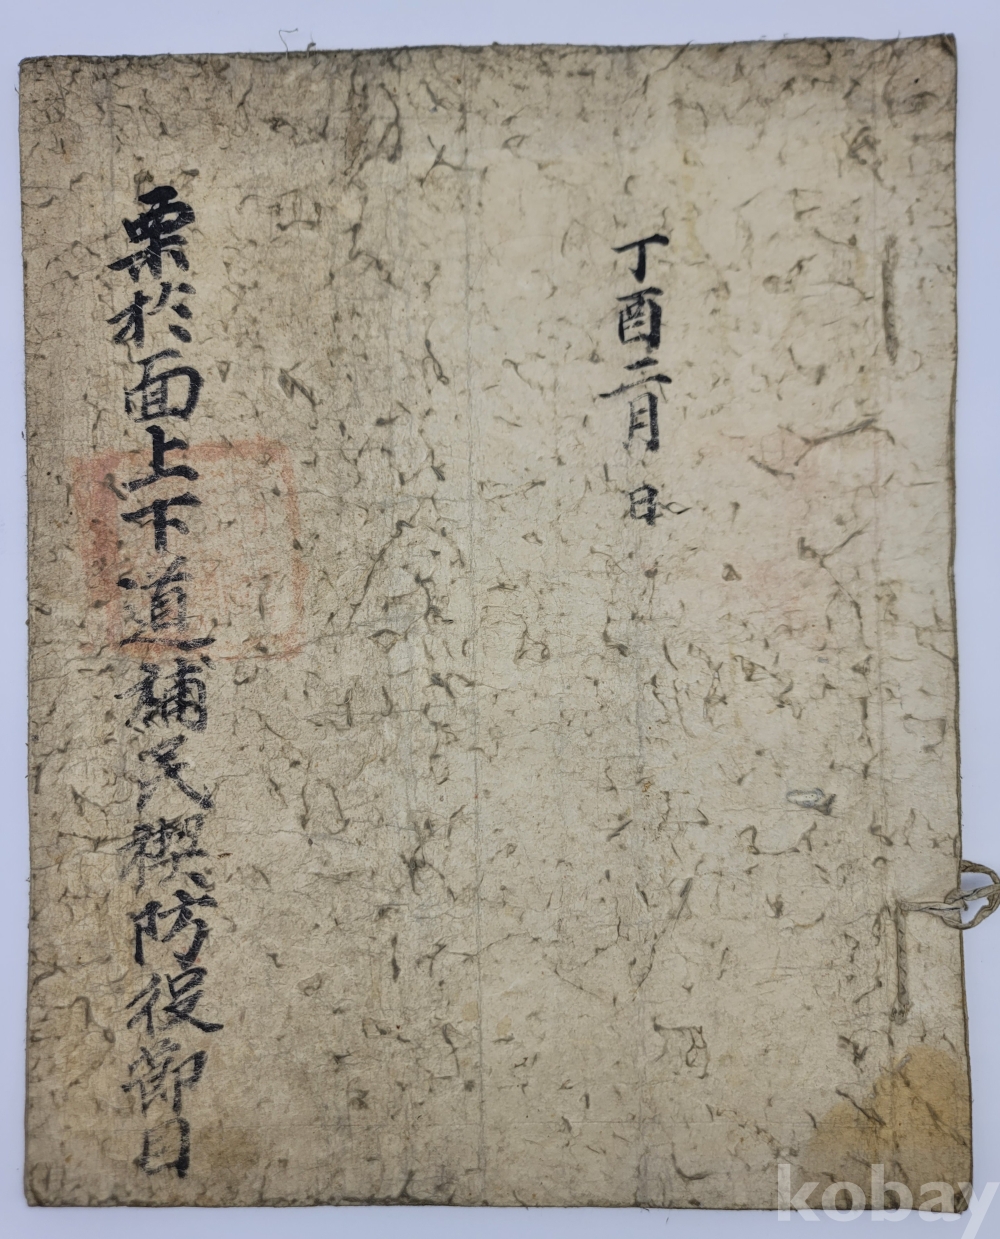 丁酉二月 日
栗於面上下道補民稧防役莭目
kobay